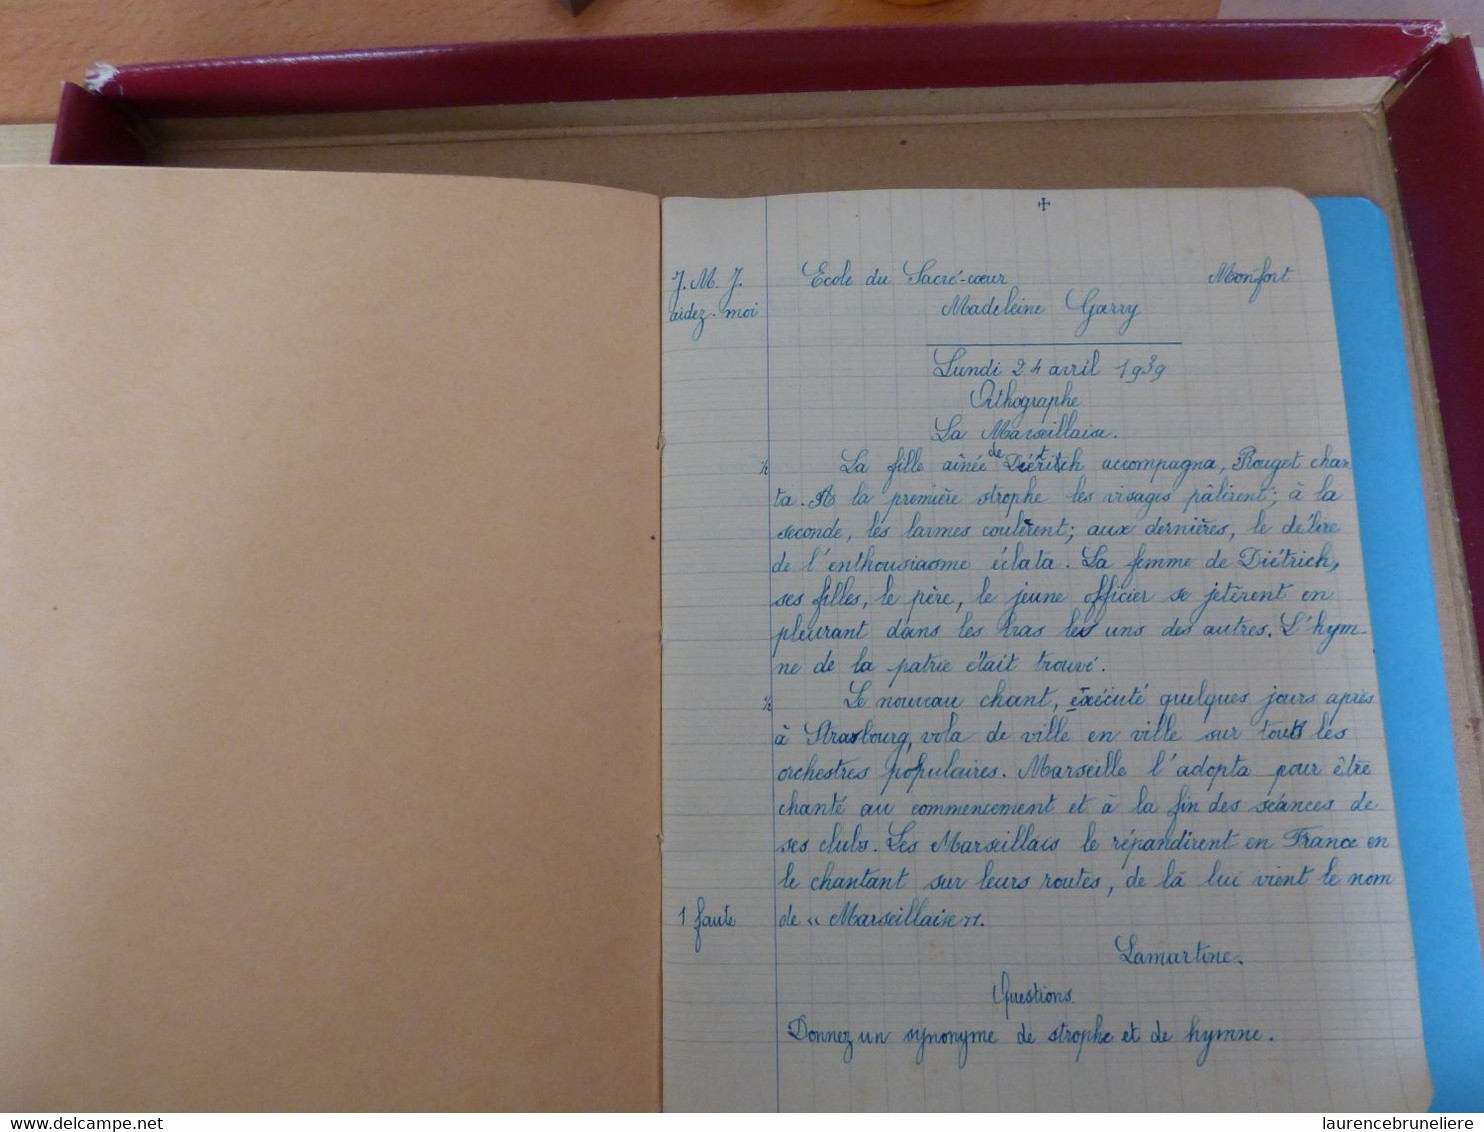 J. M. J. Ecole du Sacré-cœur Monfort
aidez-moi Madeleine Garry
Lundi 24 avril 1939
Orthographe
La Marseillaise.
½ La fille aînée de Diétrich accompagna, Rouget chan
ta. A la première strophe les visages pâlirent; à la
seconde, les larmes coulèrent; aux dernières, le délire
de l'enthousiasme éclata. La femme de Diétrich,
ses filles, le père, le jeune officier se jetèrent en
pleurant dans les bras les uns des autres. L'hym-
ne de la patrie était trouvé.
½ Le nouveau chant, exécuté quelques jours après
à Strasbourg, vola de ville en ville sur tous les
orchestres populaires. Marseille l'adopta pour être
chanté au commencement et à la fin des séances de
ses clubs. Les Marseillais le répandirent en France en
le chantant sur leurs routes, de là lui vient le nom
1 faute de « Marseillaise ».
Lamartine.
Questions
Donnez un synonyme de strophe et de hymne.
delcampe.net
laurencebruneliere